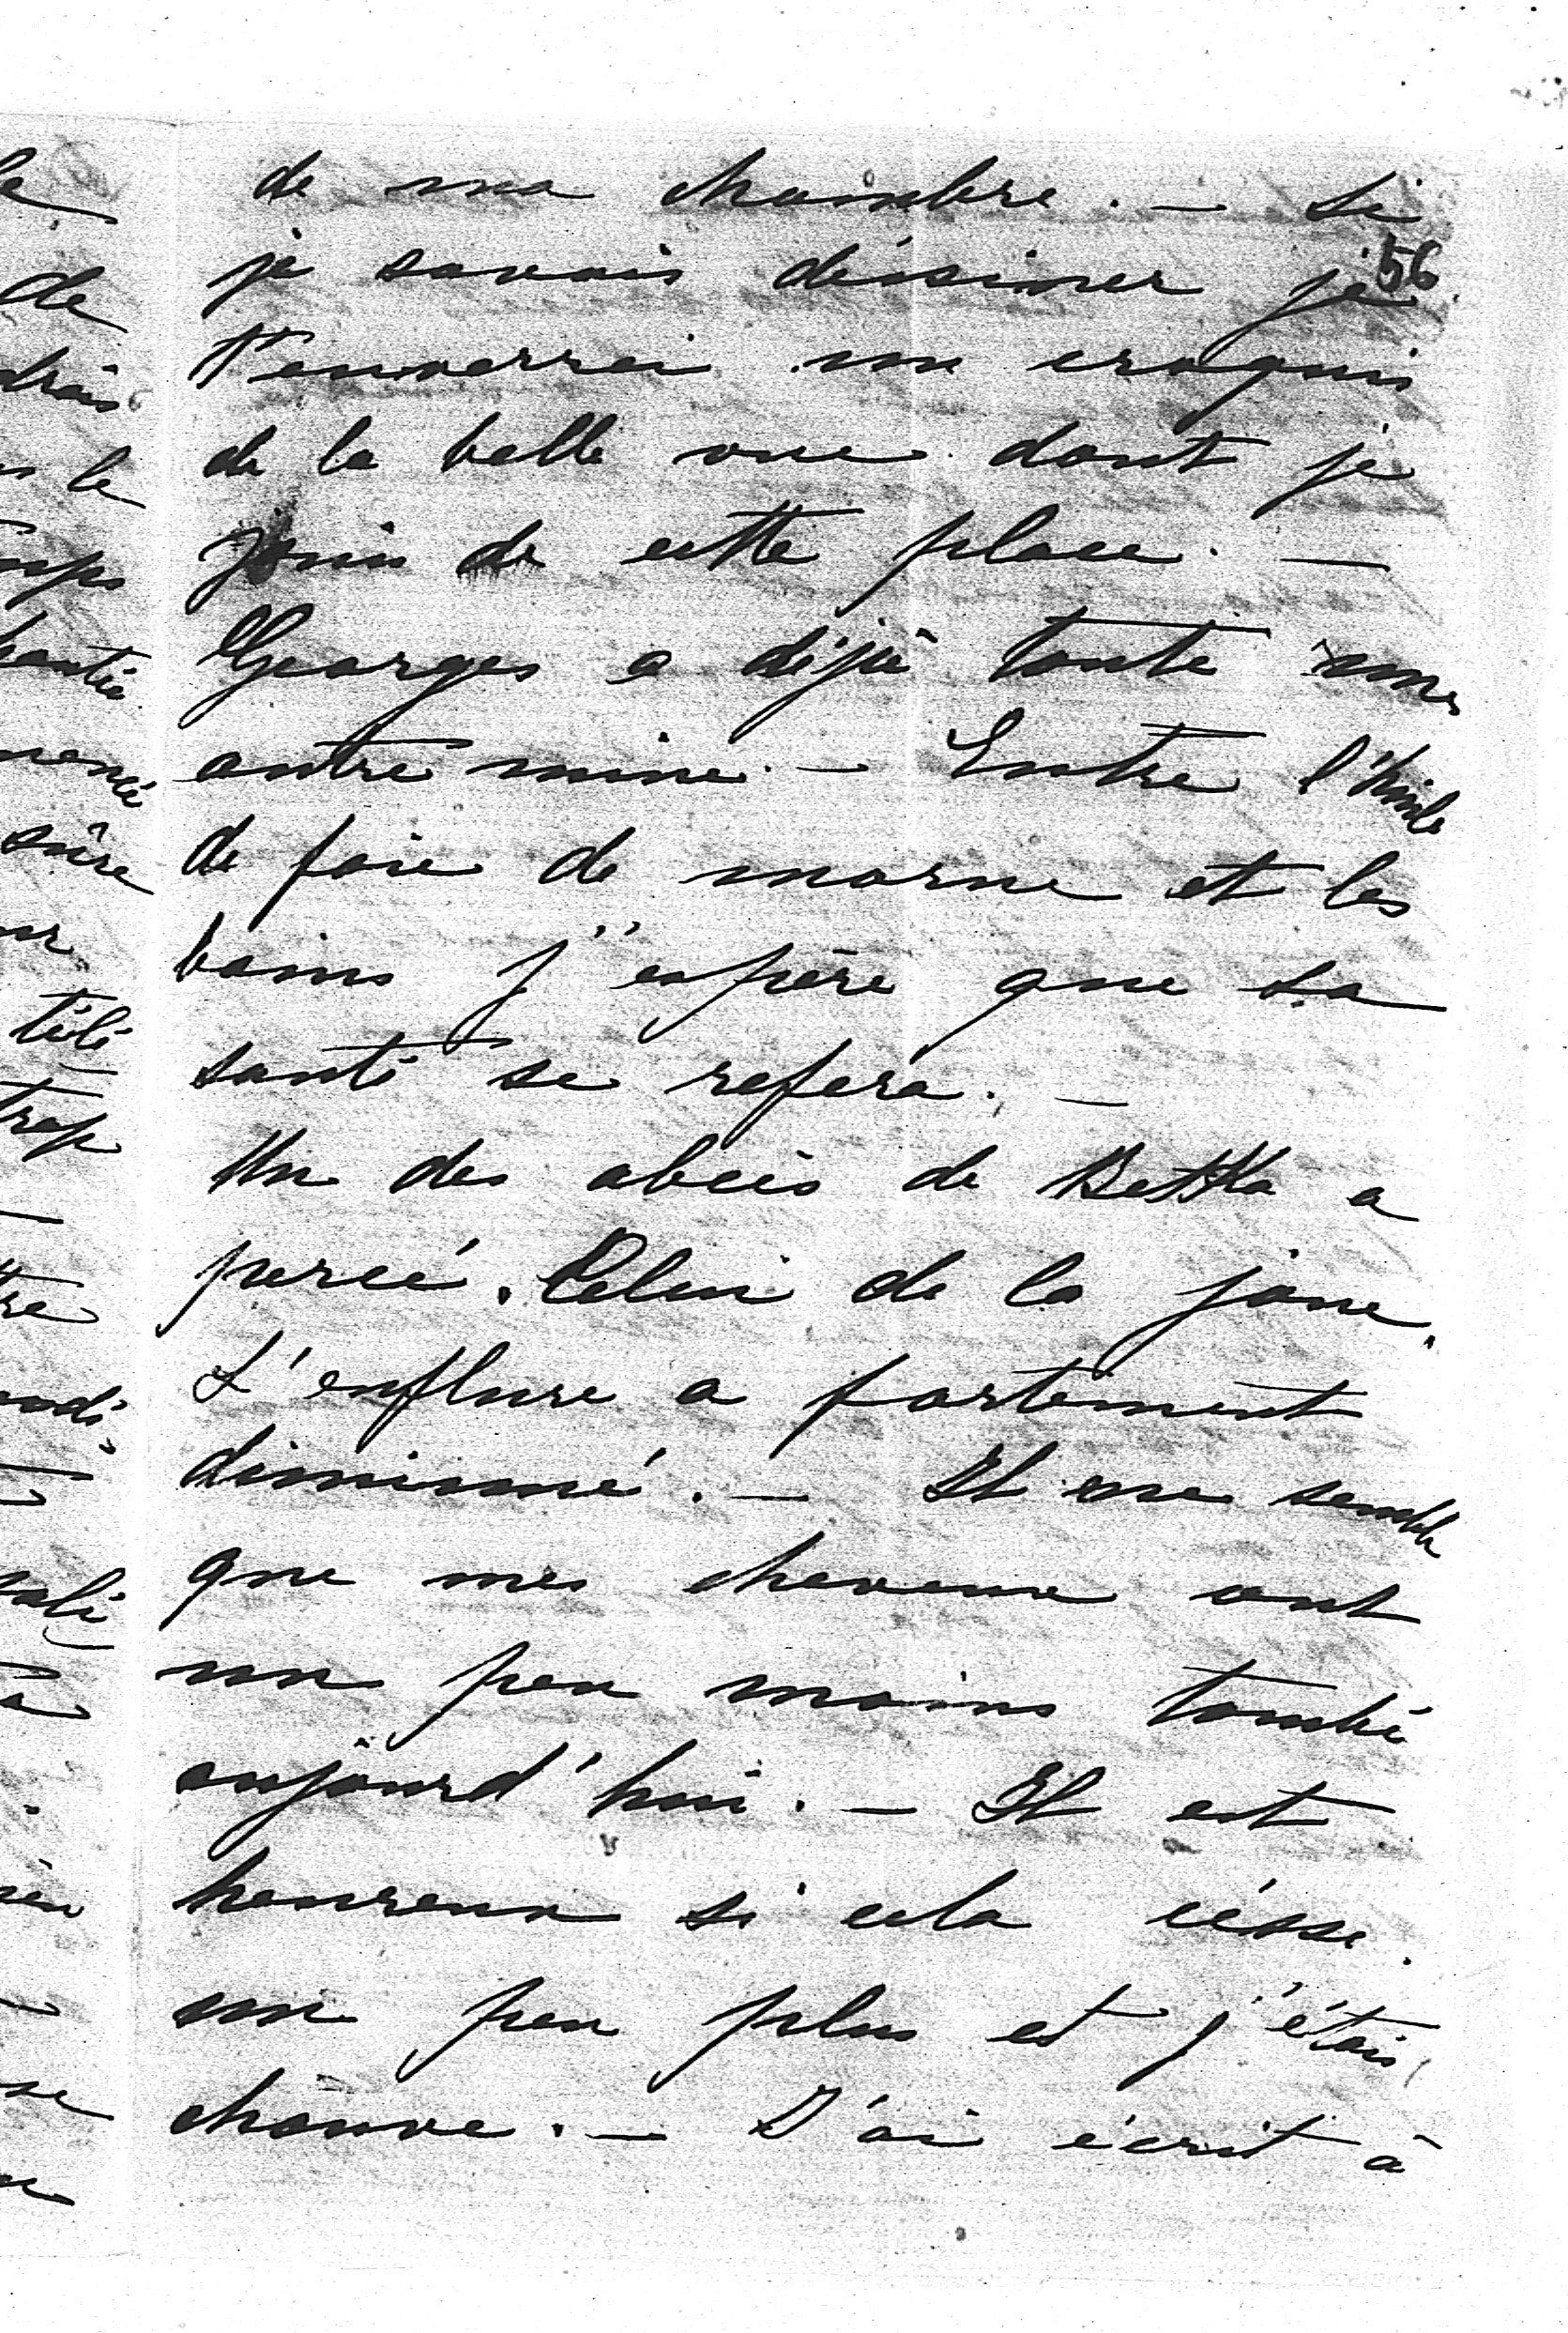 de ma chambre. — Si
56
je savais déssiner je
t'enverrai un croquis
de la belle vue dont je
jouis de cette place. —
Georges a déjà toute une
autre mine. — Entre l'huile
de foie de morue et les
bains j'espère que sa
santé se refera. —
Un des abcès de Bettka a
percé. Celui de la joue.
L'enflure a fortement
diminué. — Il me semble
que mes cheveux ont
un peu moins tombé
aujourd'hui. — Il est
heureux si cela cèsse.
un peu plus et j'étais
chauve. — J'ai écrit à